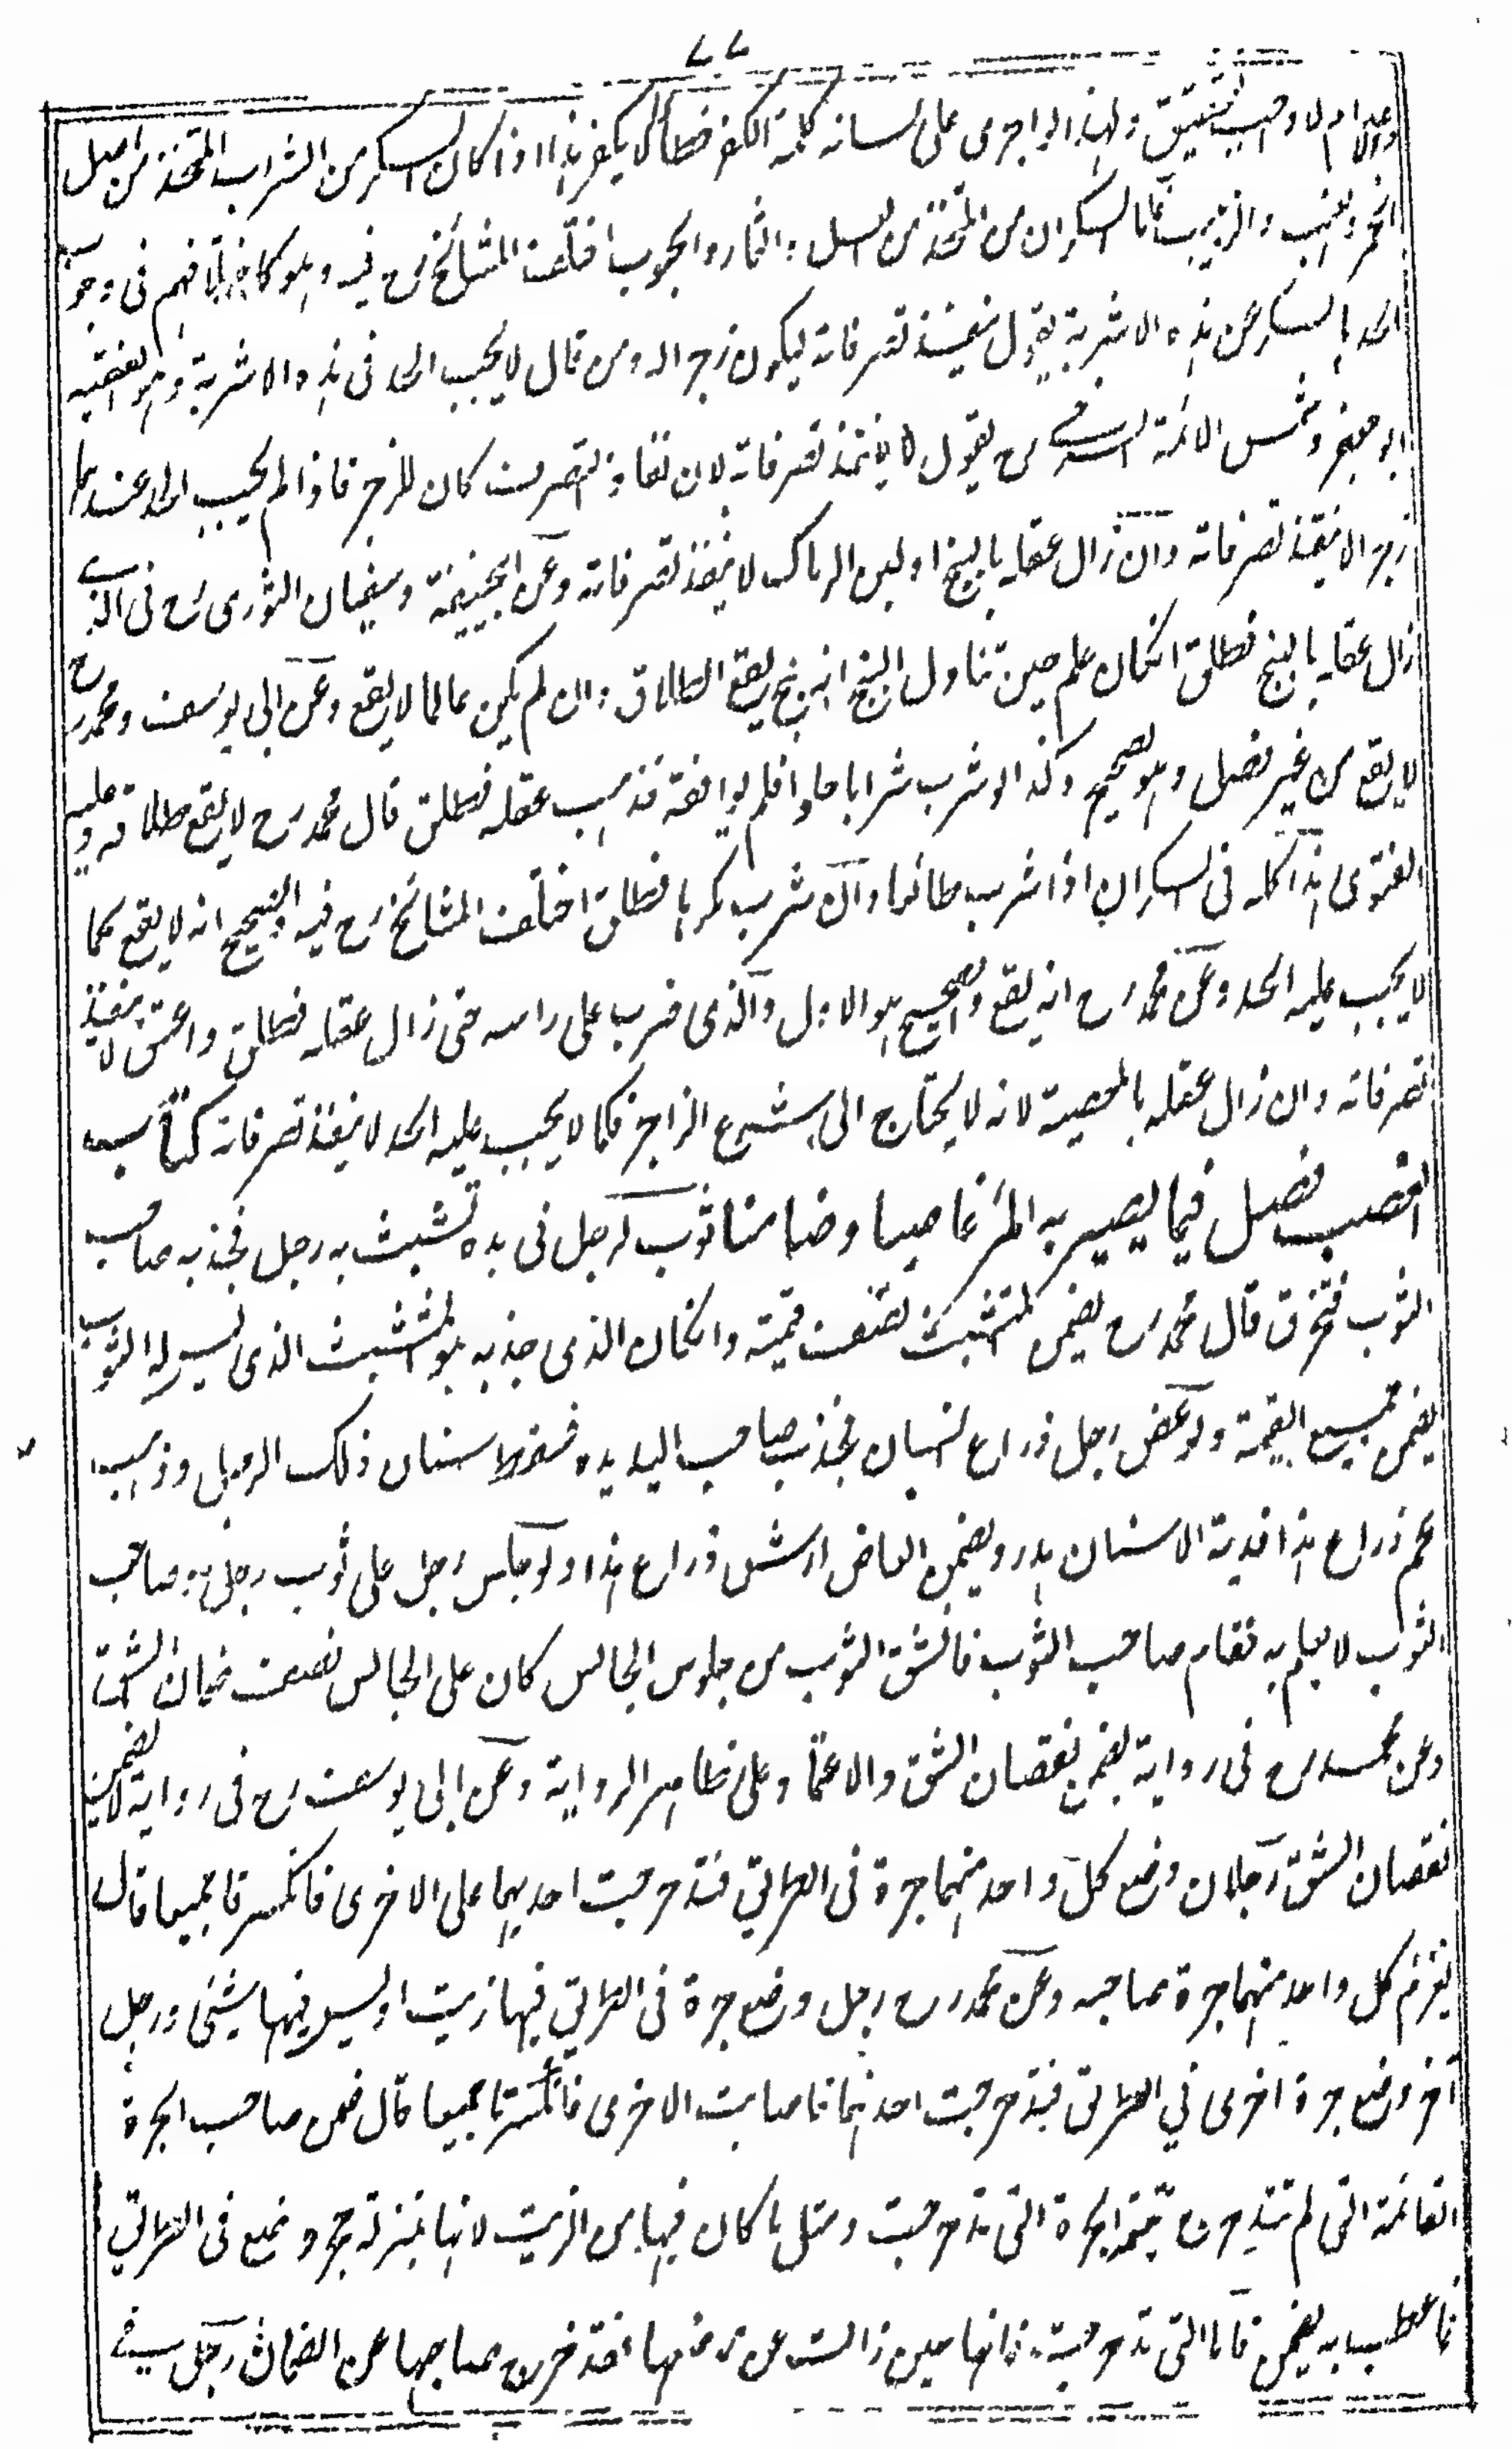 ٧٧
والاعدام لا وجب التحقيق ولهذا لو اجرى على لسانه كلمة الكفر خطأ لا يكفر هذا اذا كان السكر من الشراب المتخذ من اصل
الخمر والعنب والزبيب فاما السكران من المتخذ من العسل والثمار والحبوب اختلف المشائخ رح فيه وهو كاختلافهم فى وجوب
الحد بالسكر من هذه الاشربة يقول ينفذ تصرفاته ليكون زجرا له ومن قال لا يجب الحد فى هذه الاشربة وهو الفقيه
ابو جعفر وشمس الائمة السرخسي رح يقول لا ينفذ تصرفاته لان نفاذ التصرف كان للزجر فاذا لم يجب الحد عندهما
زجرا لا ينفذ تصرفاته وان زال عقله بالبنج او لبن الرماك لا ينفذ تصرفاته وعن ابيحنيفة وسفيان الثورى رح فى الذي
زال عقله بالبنج فطلق انكان علم حين تناول البنج انه بنج يقع الطلاق وان لم يكن عالما لا يقع وعن ابى يوسف ومحمد رح
لا يقع من غير فصل وهو الصحيح وكذا لو شرب شرابا حلوا فلم يوافقه فذهب عقله فطلق قال محمد رح لا يقع طلاقه وعليه
الفتوى هذا كله فى السكران اذا شرب طائعا وان شرب مكرها فطلق اختلف المشائخ رح فيه والصحيح انه لا يقع كما
لا يجب عليه الحد وعن محمد رح انه يقع والصحيح هو الاول والذى ضرب على راسه حتى زال عقله فطلق واعتق لا ينفذ
تصرفاته وان زال عقله بالمعصية لانه لا يحتاج الى شرع الزاجر فكما لا يجب عليه الحد لا ينفذ تصرفاته كتاب
الغصب فصل فيما يصير به المرء غاصبا وضامنا ثوب لرجل فى يده تشبث به رجل فجذبه صاحب
الثوب فتخرق قال محمد رح يضمن المتشبث نصف قيمته وانكان الذى جذبه هو المتشبث الذى ليس له الثوب
يضمن جميع القيمة ولو عض رجل ذراع انسان فجذب صاحب اليد يده فسقط اسنان ذلك الرجل وذهب
لحم ذراع هذا فدية الاسنان هدر ويضمن العاض ارش ذراع هذا ولو جلس رجل على ثوب رجل وصاحب
الثوب لا يعلم به فقام صاحب الثوب فانشق الثوب من جلوس الجالس كان على الجالس نصف ضمان الشق
وعن محمد رح فى رواية يضمن نقصان الشق والاعتماد على ظاهر الرواية وعن ابى يوسف رح فى رواية لا يضمن
نقصان الشق رجلان وضع كل واحد منهما جرة فى الطريق فتدحرجت احديهما على الاخرى فانكسرتا جميعا قال
يغرم كل واحد منهما جرة صاحبه وعن محمد رح رجل وضع جرة فى الطريق فيها زيت او ليس فيها شيئ ورجل
آخر وضع جرة اخرى في الطريق فتدحرجت احدنهما فاصابت الاخرى فانكسرتا جميعا قال ضمن صاحب الجرة
القائمة التى لم تتدحرج قيمة الجرة التى تدحرجت ومثل ما كان فيها من الزيت لانها بمنزلة حجر وضع فى الطريق
فما عطب به يضمن فاما التى تدحرجت فانها حين زالت عن موضعها فقد خرج صاحبها عن الضمان رجل سقى